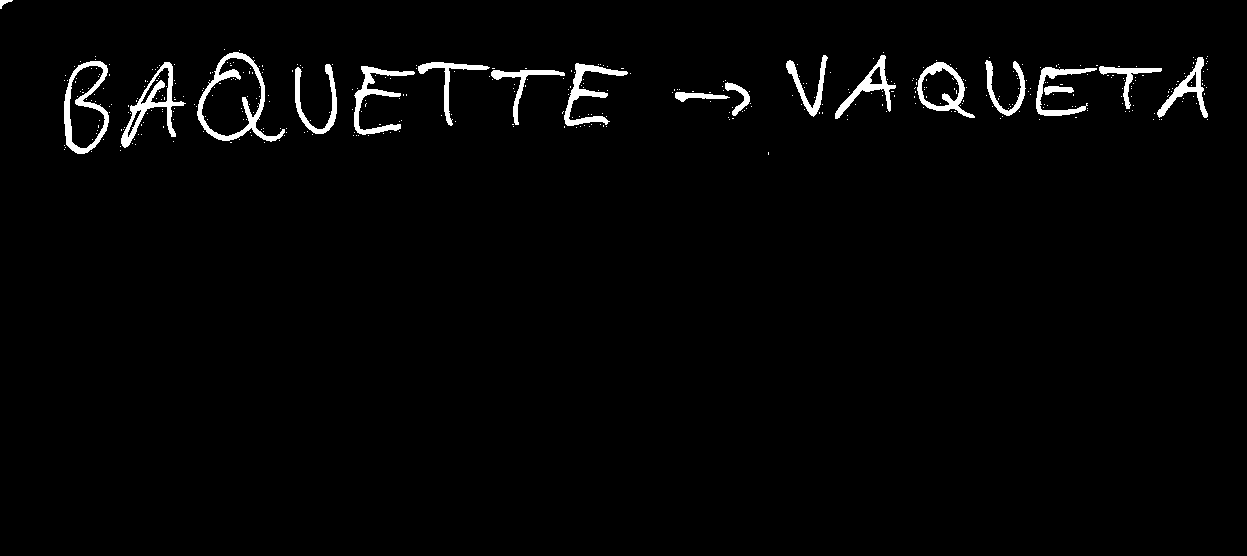 BAQUETTE → VAQUETA